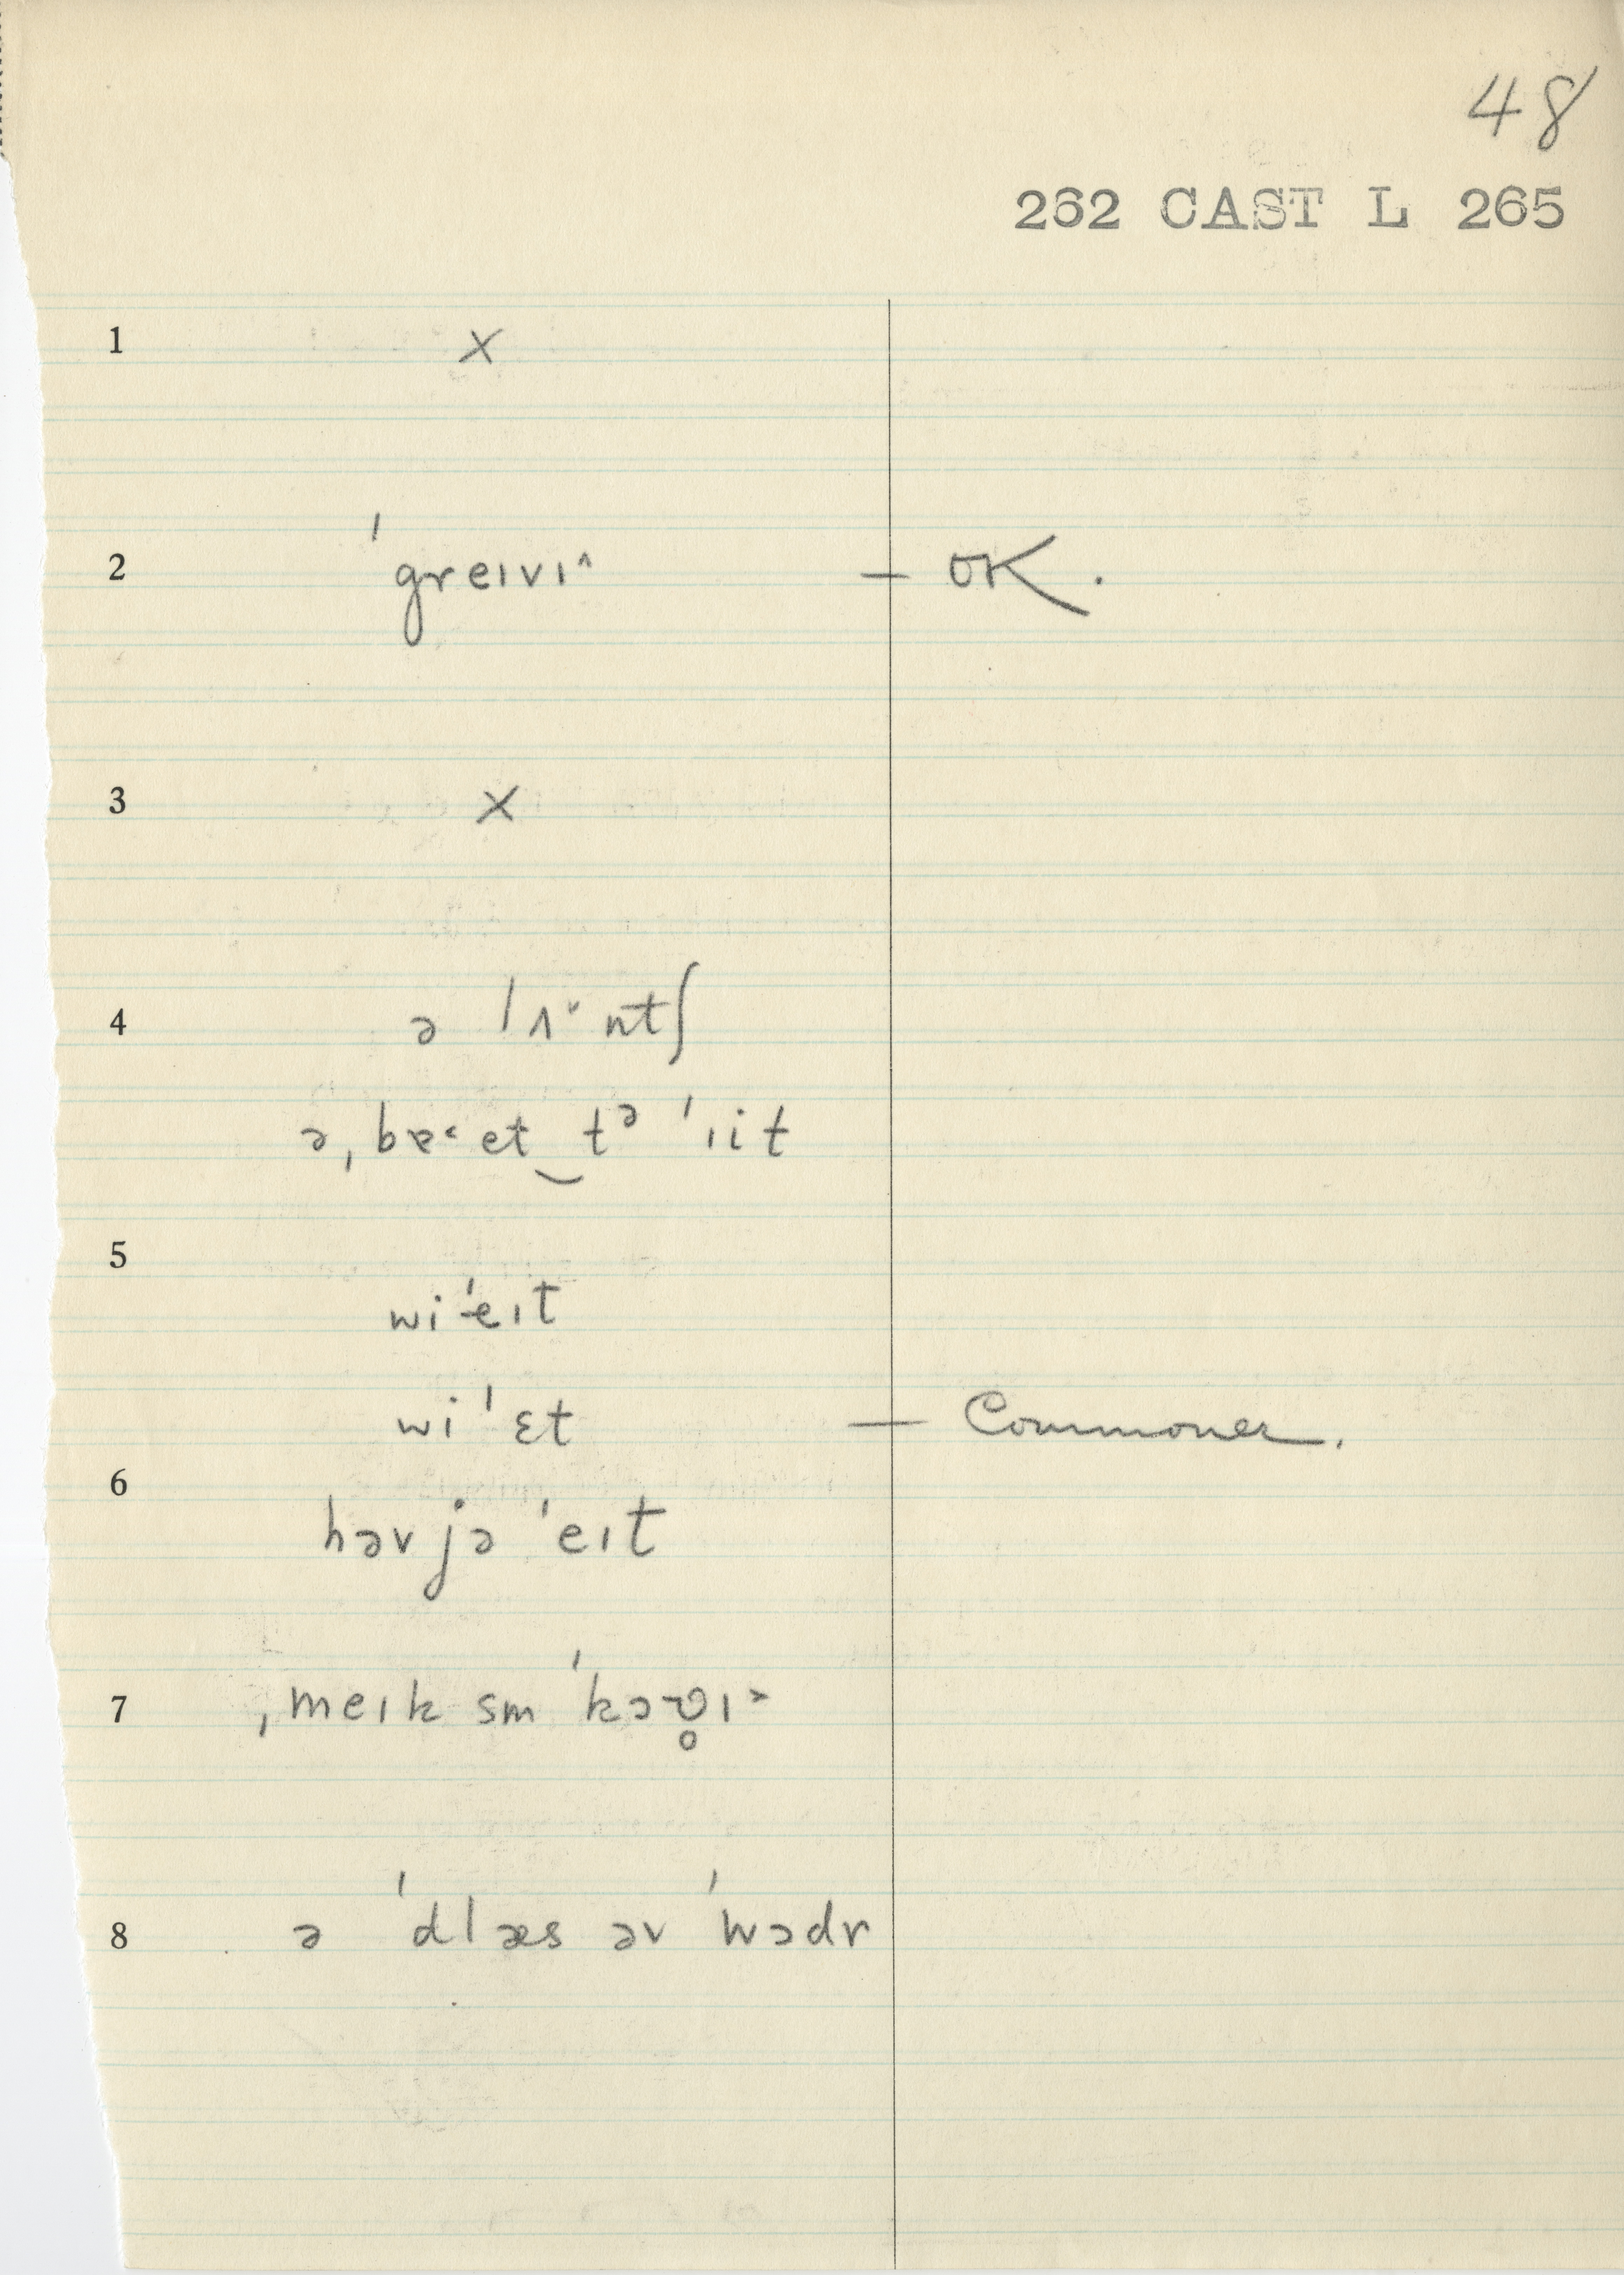 48
262 CAST L 265
1 x
2 ˈgreɪvɪ^ — OK.
3 x
4 ə lʌ˞ntʃ
ə ˌbɐ˂et‿tə ˈɪit
5 wi ˈeɪt
wi ˈɛt — Commoner.
6 həv jə ˈeɪt
7 ˌmeɪk sm ˈkɔʋ̥ɪ˃
8 ə ˈdlæs əv ˈwɔdr